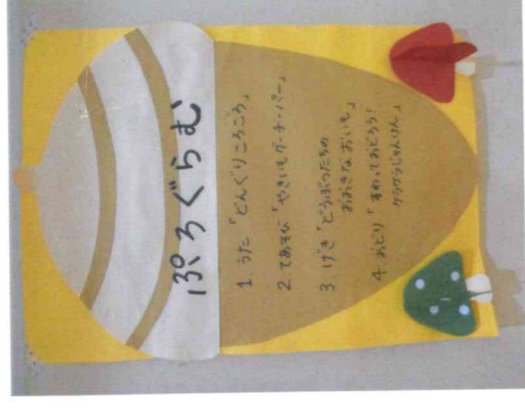 ぷろぐらむ
1. うた「どんぐりころころ」
2. てあそび「やきいもグーチーパー」
3. げき「どうぶつたちの
おおきなおいも」
4. おどり「まわっておどろう！